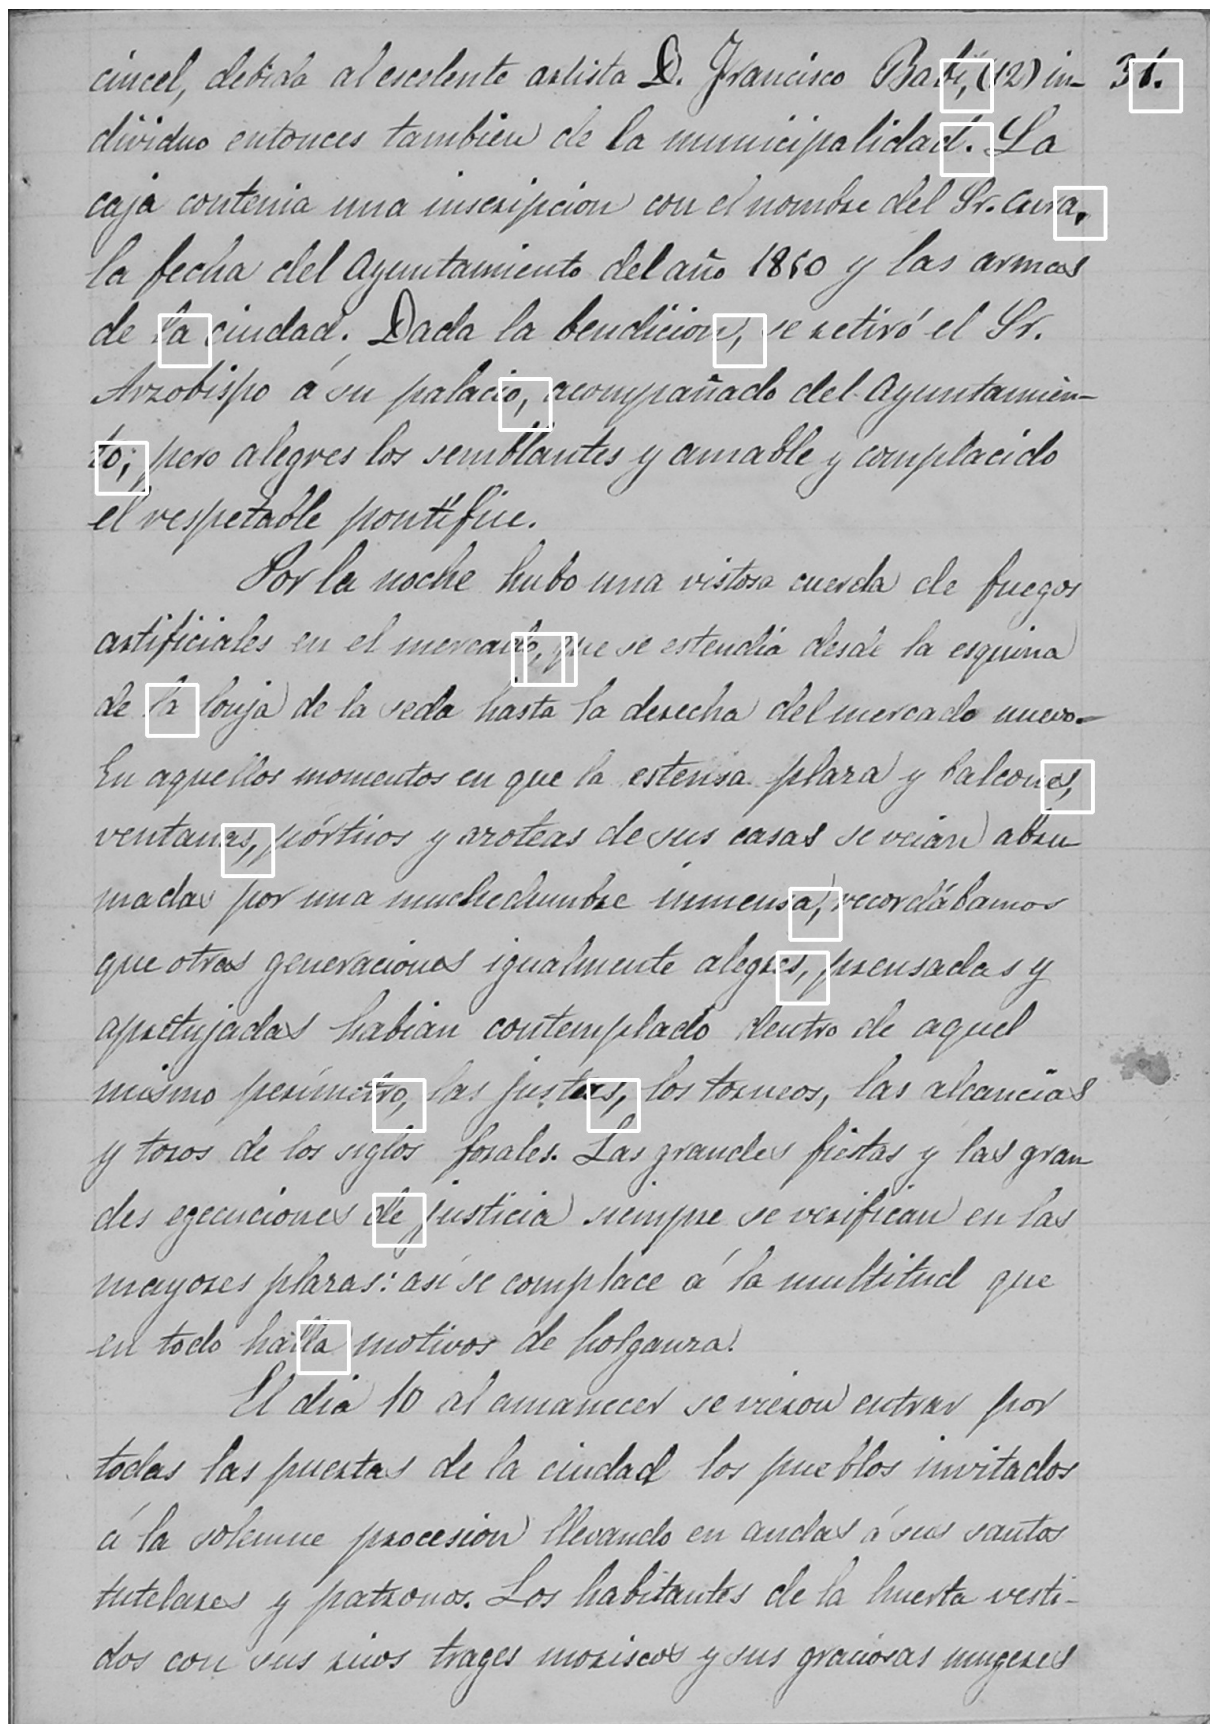 cincel, debida al escelente artista D. Francisco Babí, (12) in- 31.
dividuo entonces tambien de la municipalidad. La
caja contenia una inscripcion con el nombre del Sr. Cura,
la fecha del Ayuntamiento del año 1850 y las armas
de la ciudad. Dada la bendicion, se retiró el Sr.
Arzobispo á su palacio, acompañado del Ayuntamien-
to; pero alegres los semblantes y amable y complacido
el respetable pontífice.
Por la noche hubo una vistosa cuerda de fuegos
artificiales en el mercado, que se estendia desde la esquina
de la lonja de la seda hasta la derecha del mercado nuevo.
En aquellos momentos en que la estensa plaza y balcones,
ventanas, pórticos y azoteas de sus casas se veian abru
madas por una muchedumbre inmensa, recordábamos
que otras generaciones igualmente alegres, prensadas y
apretujadas habian contemplado dentro de aquel
mismo perímetro, las justas, los torneos, las alcancias
y toros de los siglos forales. Las grandes fiestas y las gran
des egecuciones de justicia siempre se verifican en las
mayores plazas: así se complace á la multitud que
en todo halla motivos de holganza.
El dia 10 al amanecer se vieron entrar por
todas las puertas de la ciudad los pueblos invitados
á la solemne procesion llevando en andas á sus santos
tutelares y patronos. Los habitantes de la huerta vesti-
dos con sus ricos trages moriscos y sus graciosas mugeres